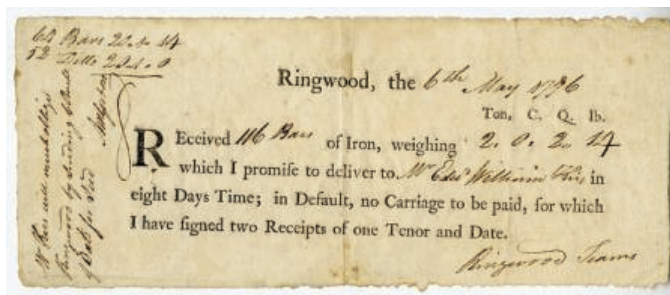 64 Bars 20 2 14
52 Ditto 20 0 0
Ringwood, the 6th May 1796
Ton, C. Q. lb.
REceived 116 Bars of Iron, weighing 2. 0. 2. 14
which I promise to deliver to Mr Edwd William in
eight Days Time; in Default, no Carriage to be paid, for which
I have signed two Receipts of one Tenor and Date.
Ringwood Teams
Ringwood by sending